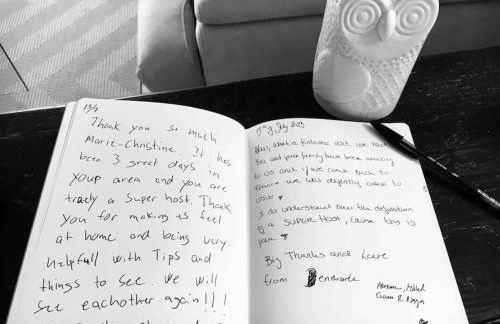 13/7
Thank you so much
Marie-Christine. It has
been 3 great days in
your area and you are
truly a super host. Thank
you for making us feel
at home and being very
helpfull with Tips and
things to see. We will
see eachother again!!!
July 2023
Wow, what a fantastic visit we had
You and your family have been amazing
to us and if we come back to
France we will defently come to
visit
I do understand now the defination
of a SUPER HOST, Cause this is
you
Big Thanks and Love
from Denmark